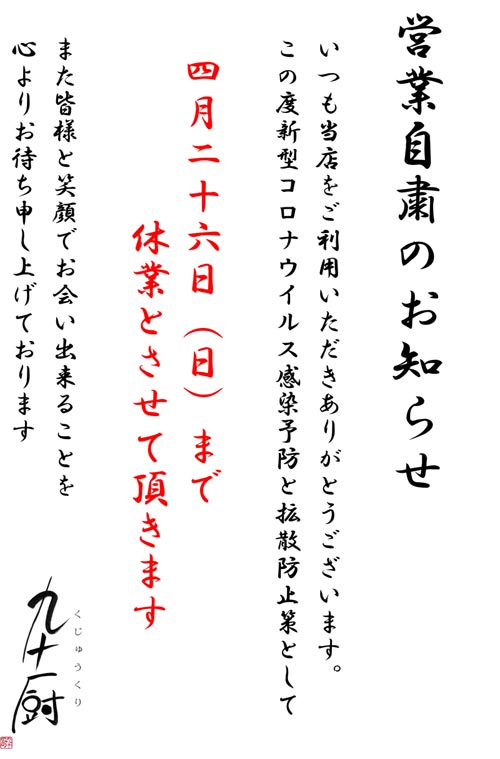 営業自粛のお知らせ
いつも当店をご利用いただきありがとうございます。
この度新型コロナウイルス感染予防と拡散防止策として
四月二十六日（日）まで
休業とさせて頂きます
また皆様と笑顔でお会い出来ることを
心よりお待ち申し上げております
くじゅうくり
九十厨